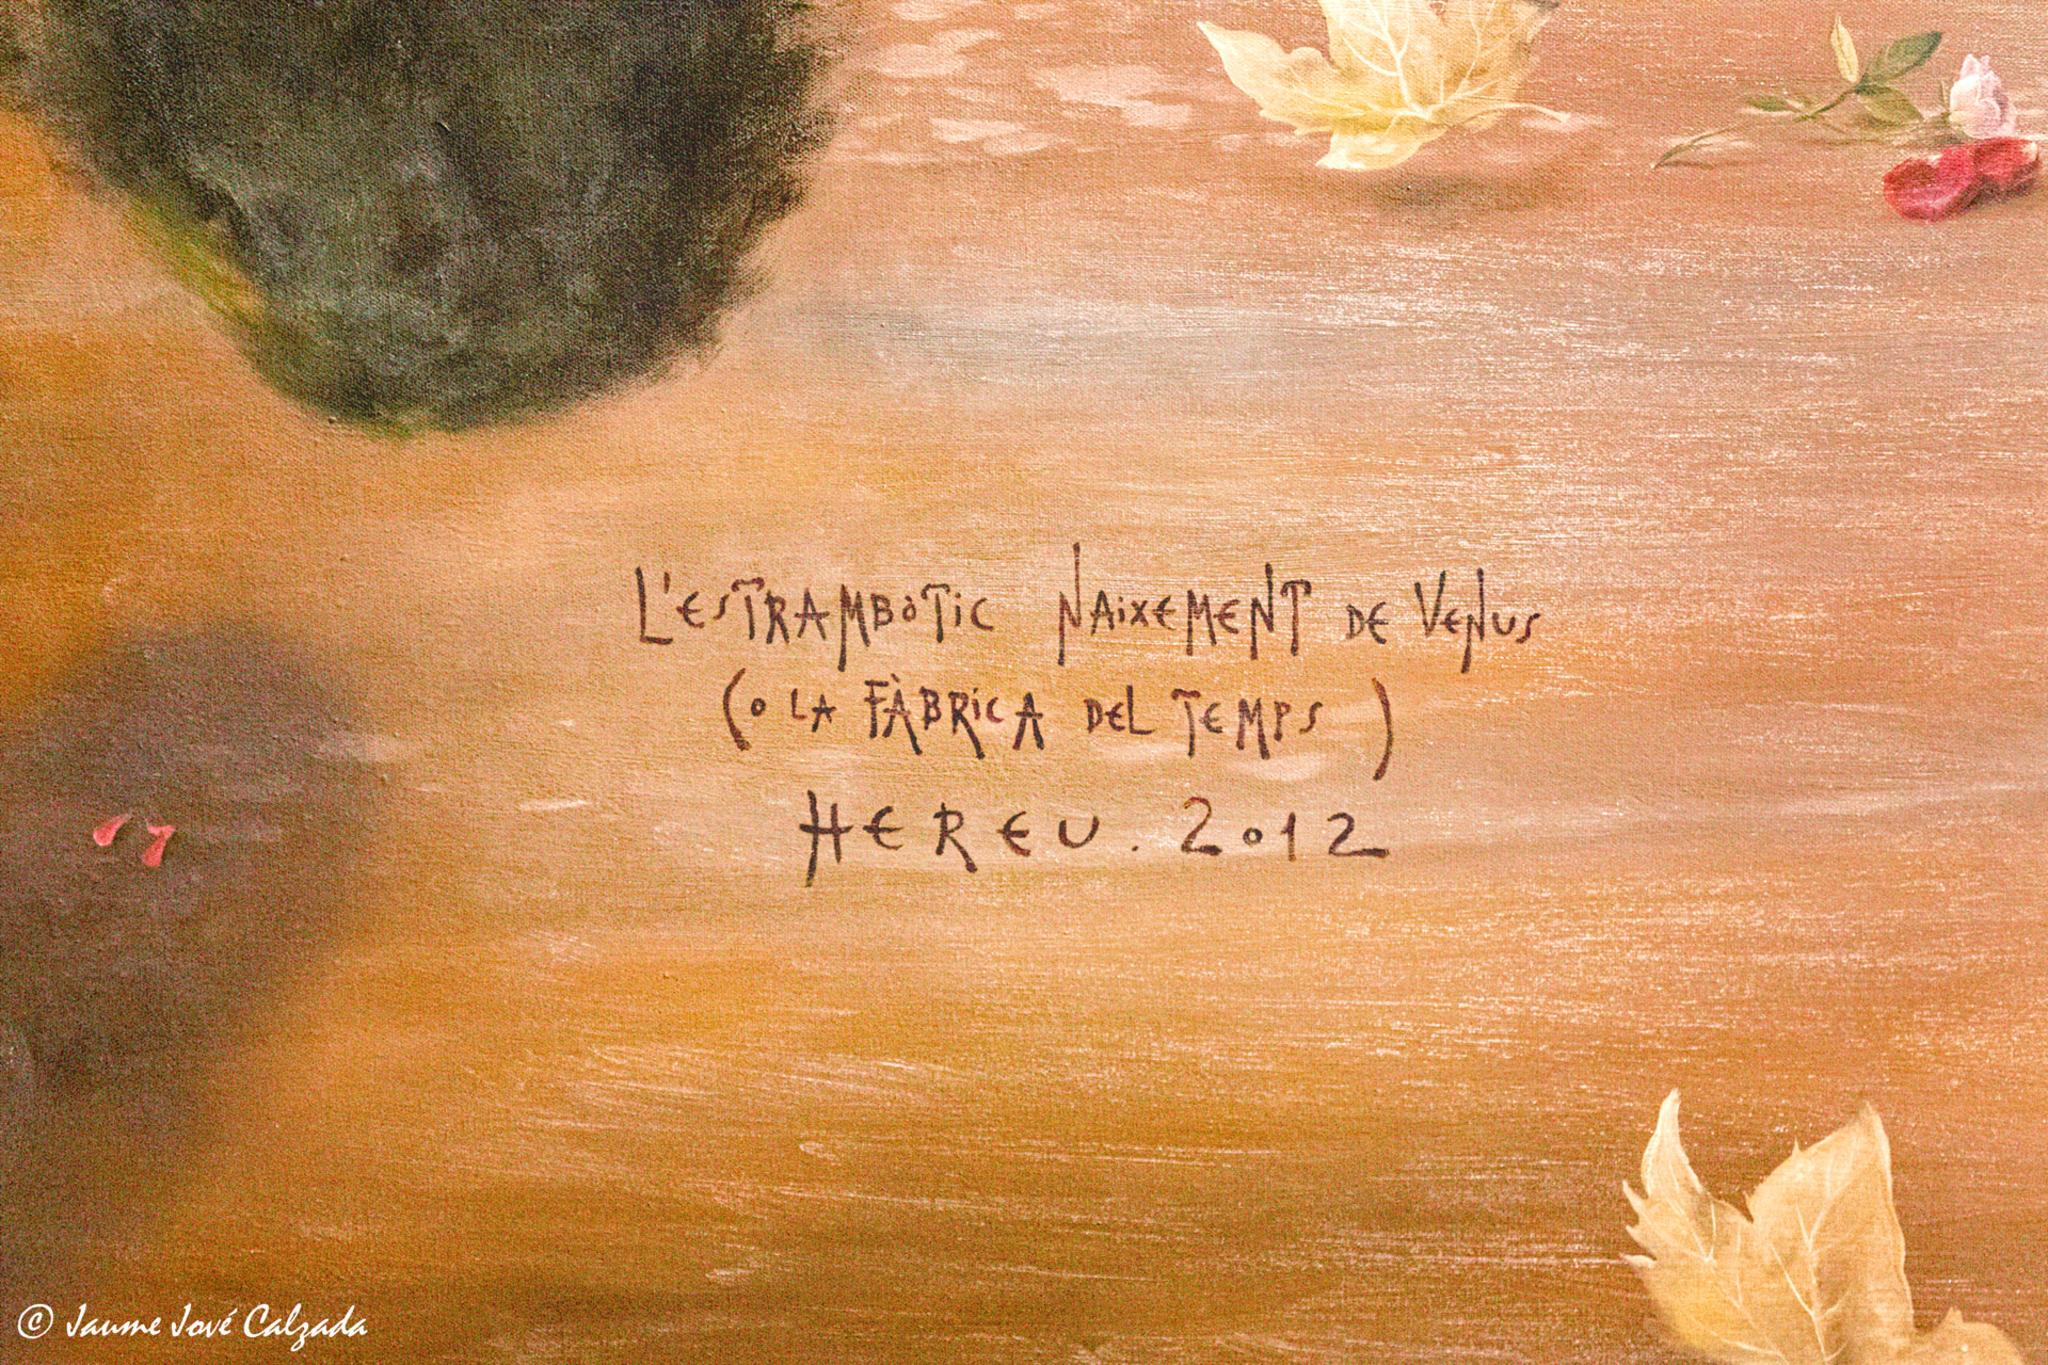 L'ESTRAMBòTiC NAiXEMENT DE VENUS
(O LA FÀBRiCA DEL TEMPS)
HEREU. 2012
© Jaume Jové Calzada